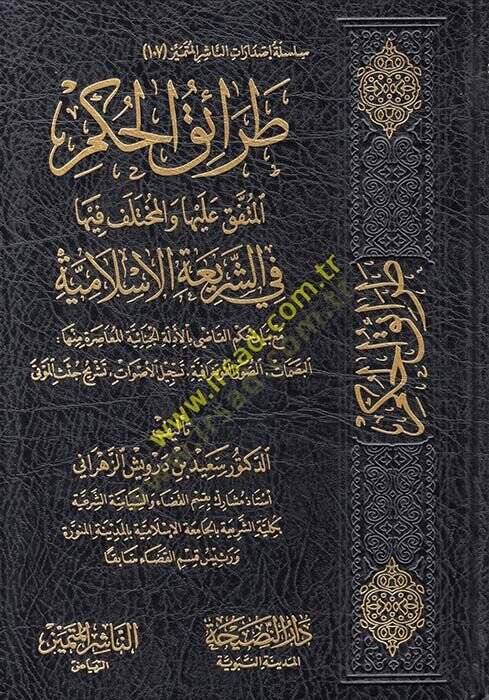 سلسلة إصدارات الناشر المتميز (١٠٧)
طرائق الحكم
المتفق عليها والمختلف فيها
في الشريعة الإسلامية
القاضي بالأدلة الجنائية المعاصرة منها:
البصمات، الصور الفوتوغرافية، تسجيل الأصوات، تشريح جثث الموتى
تأليف
الدكتور سعيد بن درويش الزهراني
أستاذ مشارك بقسم القضاء والسياسة الشرعية
بكلية الشريعة بالجامعة الإسلامية بالمدينة المنورة
ورئيس قسم القضاء سابقا
دار النصيحة
المدينة النبوية
الناشر المتميز
الرياض
طرائق الحكم
www.irsad.com.tr